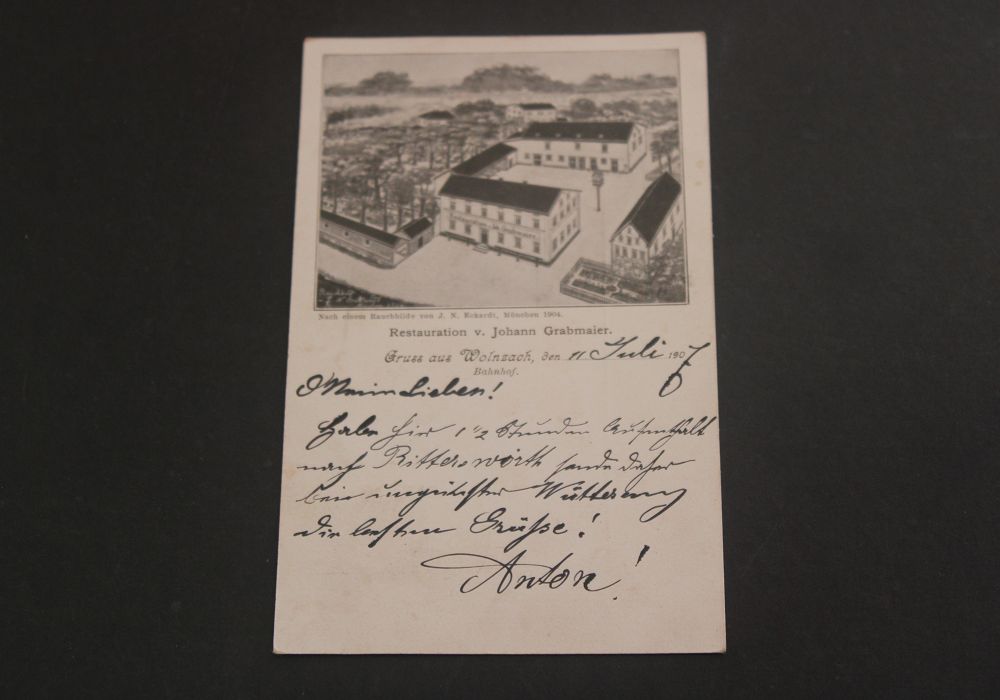 Nach einem Rauchbilde von J. N. Eckardt, München 1904.
Restauration v. Johann Grabmaier.
Gruss aus Wolnzach, den 11. Juli 1907
Bahnhof.
Meine Lieben!
Habe hier 1 1/2 Stunden Aufenthalt
nach Ritterswörth sende daher
bei Witterung
die besten Grüsse!
Anton!